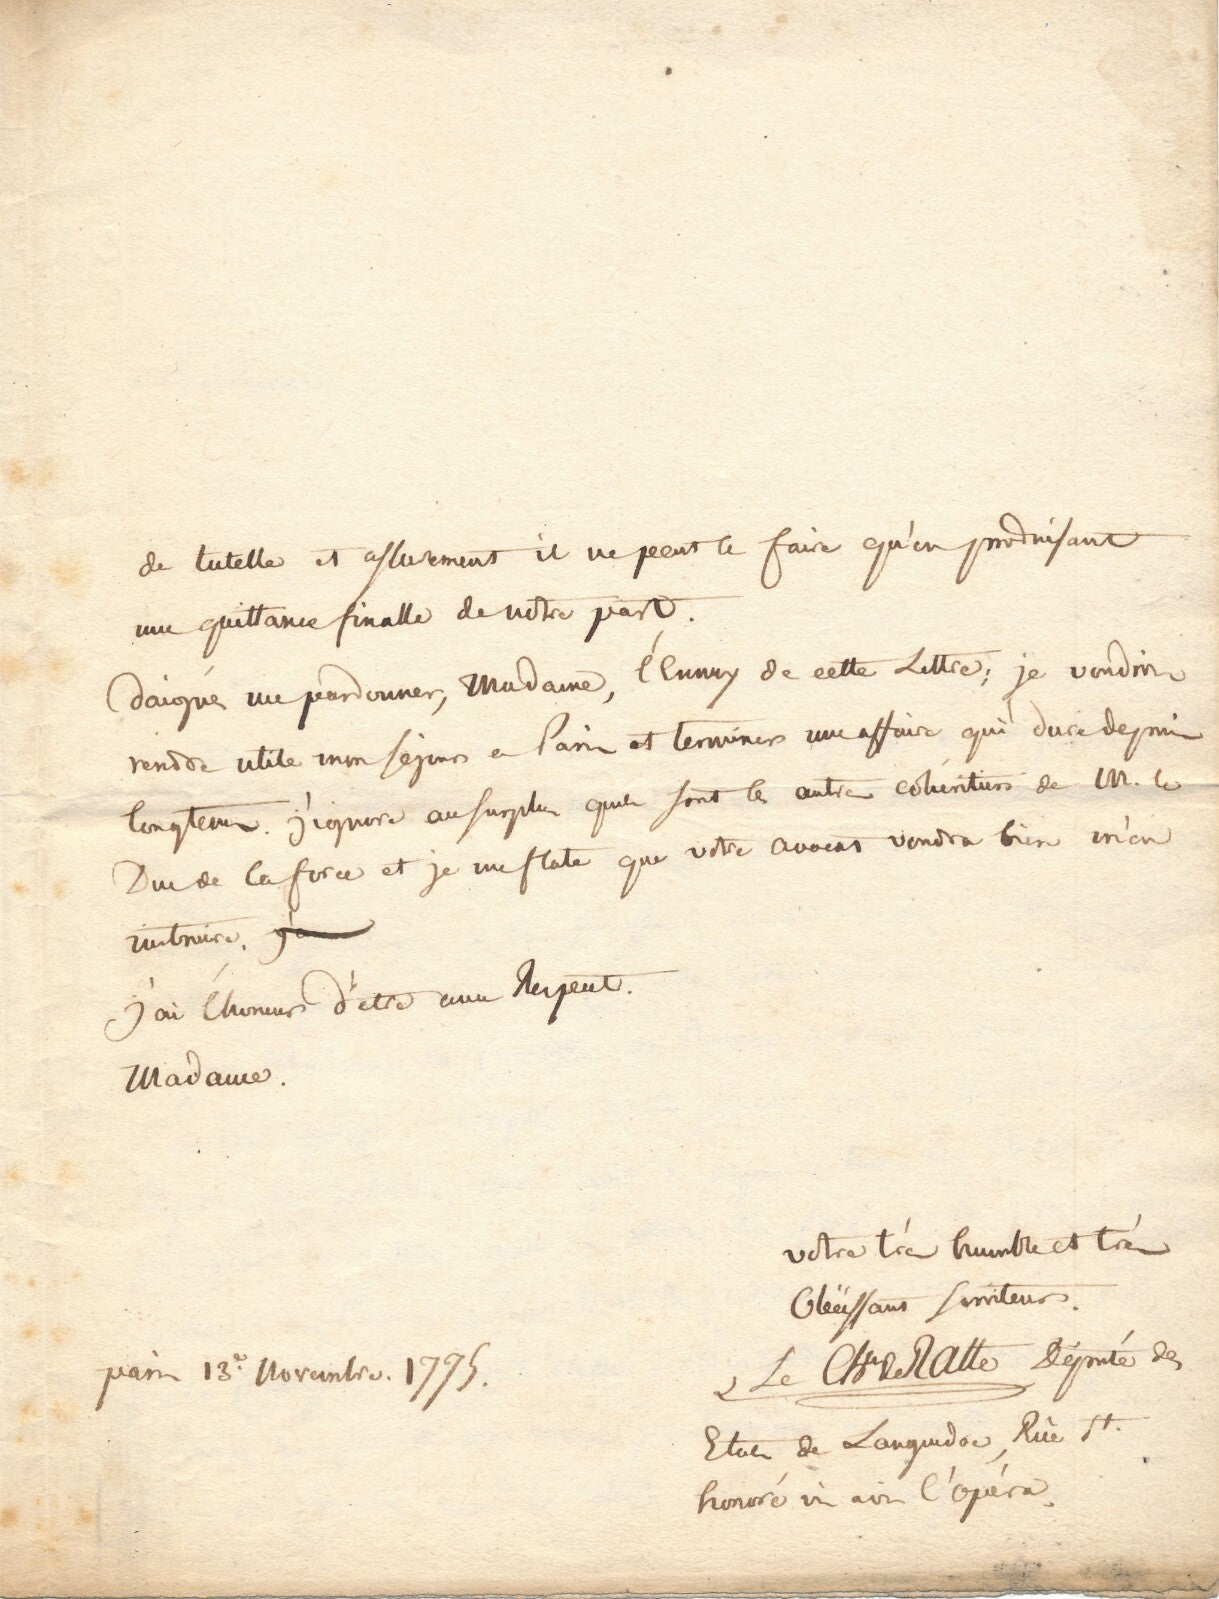 de tutelle et assurement il ne peut le faire qu'en produisant
une quittance finalle de votre part.
daignés me pardonner, Madame, l'Ennuy de cette Lettre; je voudrois
rendre utile mon séjour a Paris et terminer une affaire qui dure depuis
longtems. j'ignore au surplus quels sont les autres cohéritiers de M. le
Duc de la force et je me flate que votre avocat voudra bien m'en
instruire.
j'ai l'honneur d'être avec Respect.
Madame.
votre très humble et très
Obéissant serviteur.
paris 13e Novembre. 1775.
Le Chr. de Ratte Député des
Etats de Languedoc, Rüe St.
honoré vis avis l'opéra.